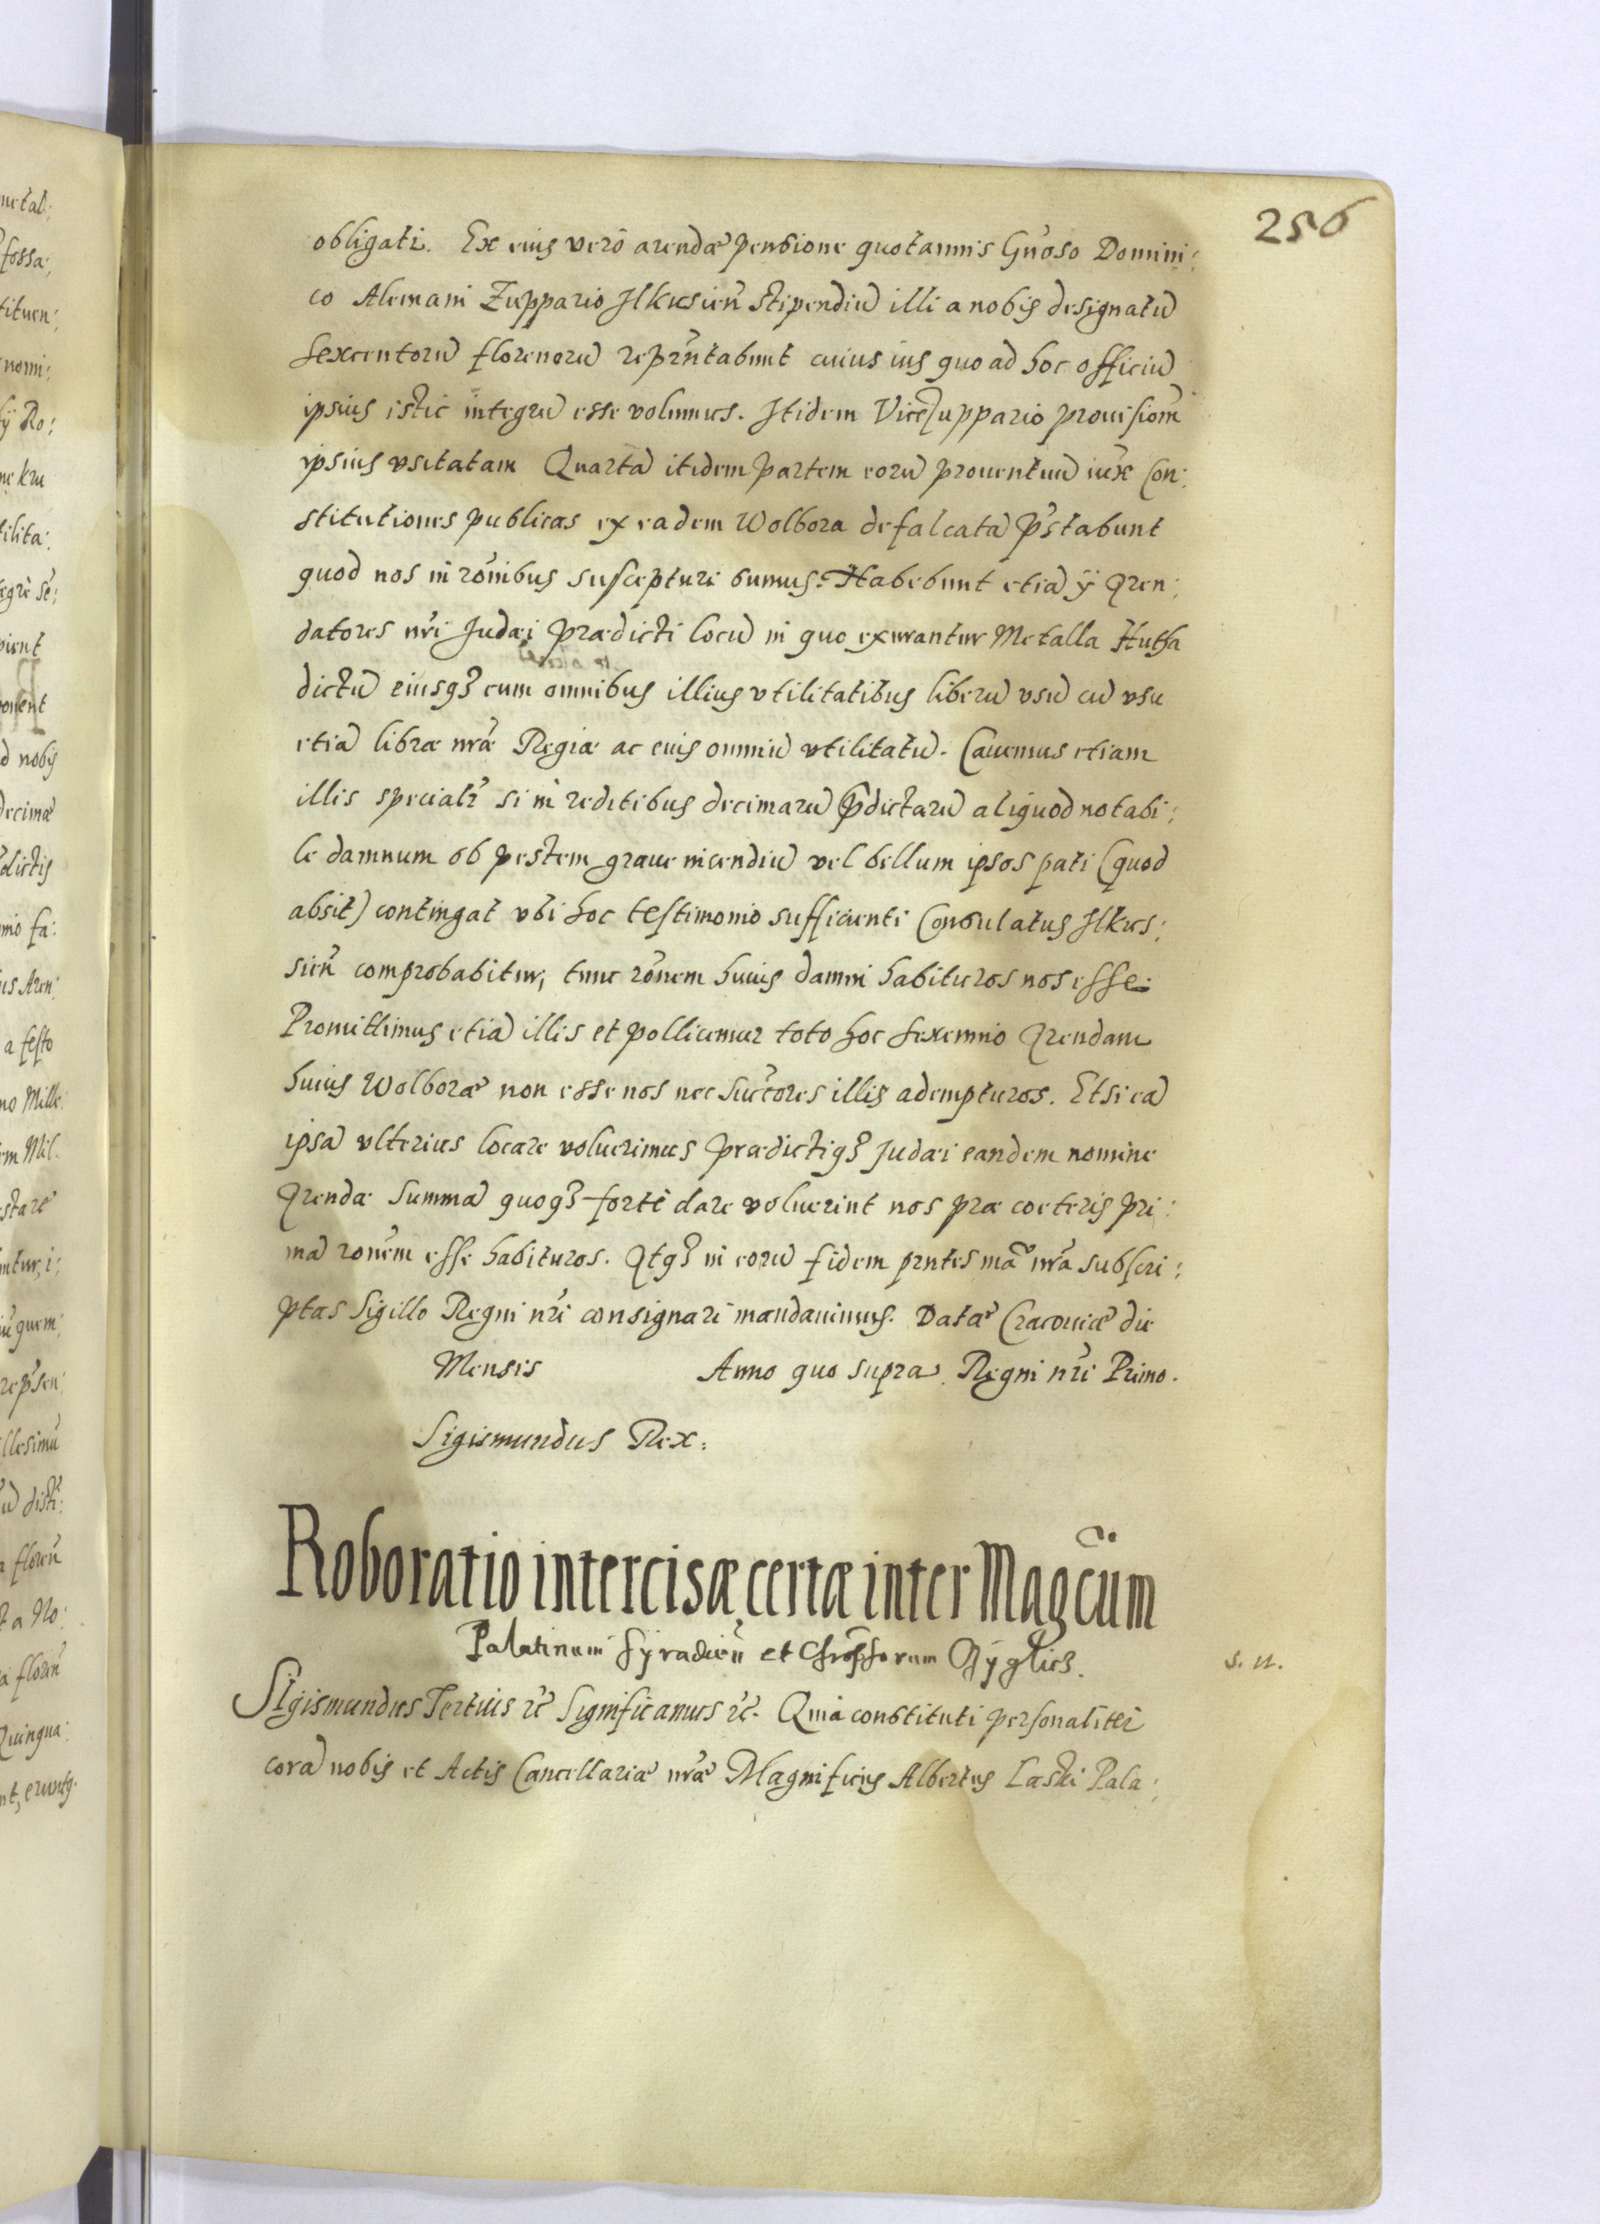 256
obligati. Ex eius verò arendæ pensione quotannis Gn̄oso Domini:
co Alemani Zuppario Ilkusieñ stipendiũ illi a nobis designatũ
sexcentorũ florenorũ repr̃ntabunt cuius ius quo ad hoc officiũ
ipsius istic integrũ esse volumus. Itidem ViceZuppario prouisiom̃
ipsius vsitatam Quartã itidem partem eorũ prouentuũ iux̃ Con:
stitutiones publicas ex eadem Wolbora defalcatã p̃stabunt
quod nos in rõnibus suscepturi sumus. Habebunt etiã ÿ Aren:
datores nr̃i Judæi prædicti locũ in quo exurantur Metalla Hutha
dictũ eiusq3 cum omnibus illius vtilitatibus liberũ vsũ cũ vsu
etiã libræ nr̃æ Regiæ ac eius omniũ vtilitatũ. Cauemus etiam
illis specialr̃ si in reditibus decimarũ p̃dictarũ aliquod notabi:
le damnum ob pestem graue incendiũ vel bellum ipsos pati (quod
absit) contingat vbi hoc testimonio sufficienti Consulatus Ilkus:
sieñ comprobabitur, tunc rõnem huius damni habituros nos esse.
Promittimus etiã illis et pollicemur toto hoc sexennio Arendam
huius Wolboræ non esse nos nec suc̃tores illis adempturos. Et si eã
ipsã vlterius locare voluerimus prædictiq3 Judæi eandem nomine
Arendæ summã quoq3 fortè dare voluerint nos præ coeteris pri:
mã ronẽm esse habituros. Atq3 in eorũ fidem prntes mañ nr̃a subscri:
ptas sigillo Regni nr̃i consignari mandauimus. Datæ Cracouiæ die
Mensis Anno quo supra. Regni nr̃i Primo.
Sigismundus Rex.
Roboratio intercisæ certæ inter Magc̃um
Palatinum Syradieñ et Chrõforum
s. n.
SIgismundus Tertius rc̃ Significamus rc̃. Quia constituti personaliter
corã nobis et Actis Cancellariæ nr̃æ Magnificus Albertus Laski Pala: